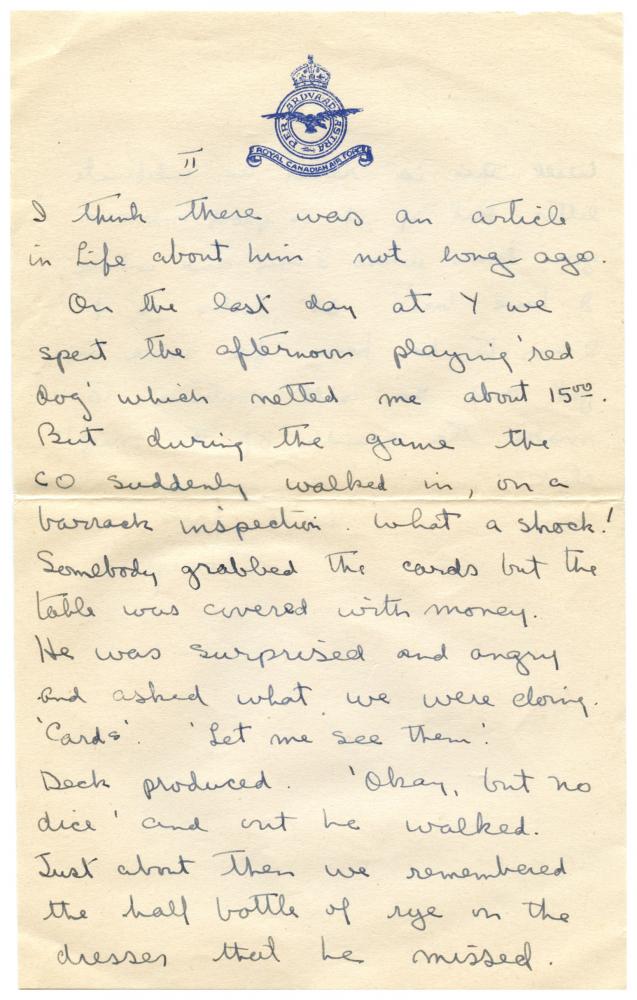 PER ARDVA AD ASTRA
ROYAL CANADIAN AIR FORCE
II
I think there was an article
in Life about him not long ago.
On the last day at Y we
spent the afternoon playing 'red
dog' which netted me about 15⁰⁰.
But during the game the
CO suddenly walked in, on a
barrack inspection. What a shock!
Somebody grabbed the cards but the
table was covered with money.
He was surprised and angry
and asked what we were doing.
'Cards'. 'Let me see them'.
Deck produced. 'Okay, but no
dice' and out he walked.
Just about then we remembered
the half bottle of rye on the
dresser that he missed.